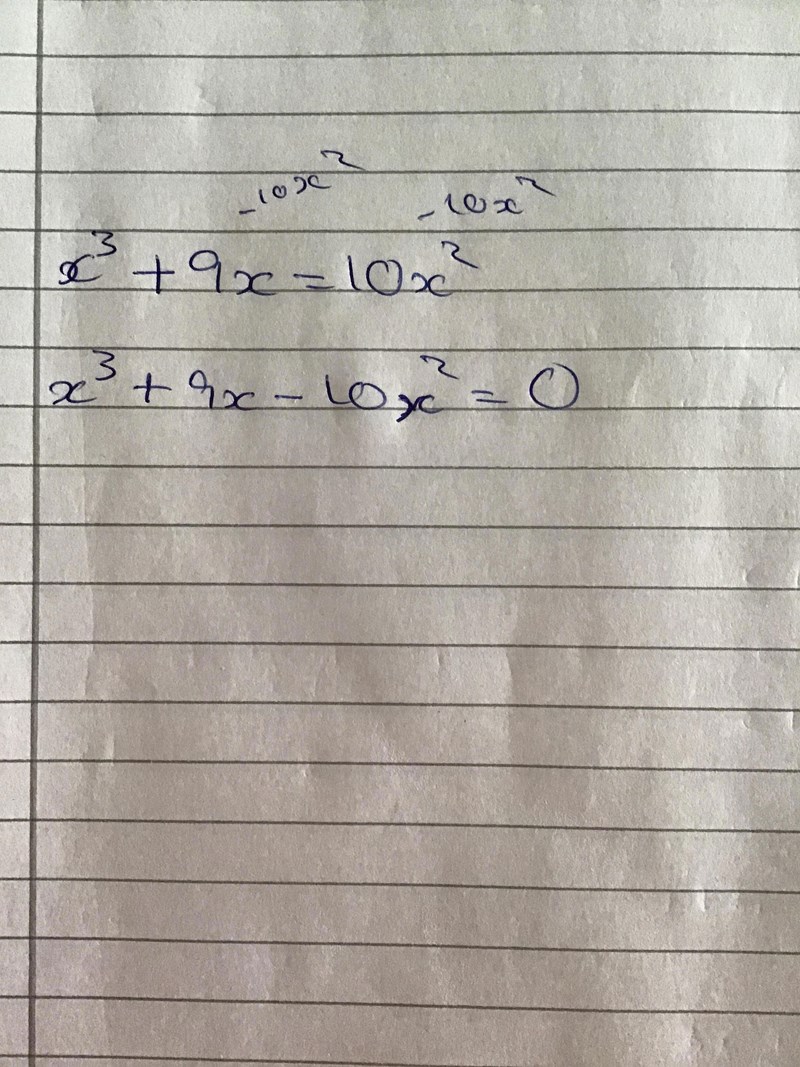 -10x² -10x²
x³ + 9x = 10x²
x³ + 9x - 10x² = 0